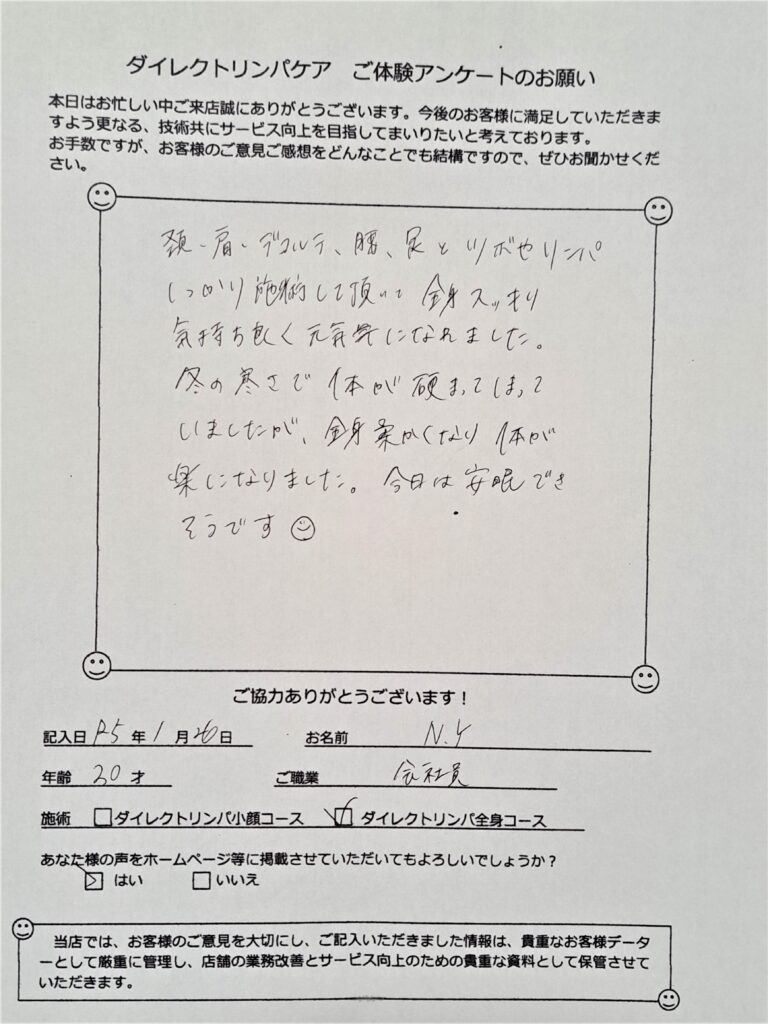 ダイレクトリンパケア　ご体験アンケートのお願い
本日はお忙しい中ご来店誠にありがとうございます。今後のお客様に満足していただきま
すよう更なる、技術共にサービス向上を目指してまいりたいと考えております。
お手数ですが、お客様のご意見ご感想をどんなことでも結構ですので、ぜひお聞かせくだ
さい。
頚、肩、デコルテ、腰、足とツボやリンパ
しっかり施術して頂いて全身スッキリ
気持ち良く元気になれました。
冬の寒さで体が硬まってしまって
いましたが、全身柔かくなり体が
楽になりました。今日は安眠でき
そうです
ご協力ありがとうございます！
記入日 R5 年 1 月 26 日　お名前 N.Y
年齢 30 才　ご職業 会社員
施術 ダイレクトリンパ小顔コース ダイレクトリンパ全身コース
あなた様の声をホームページ等に掲載させていただいてもよろしいでしょうか？
はい いいえ
当店では、お客様のご意見を大切にし、ご記入いただきました情報は、貴重なお客様データ
ーとして厳重に管理し、店舗の業務改善とサービス向上のための貴重な資料として保管させて
いただきます。